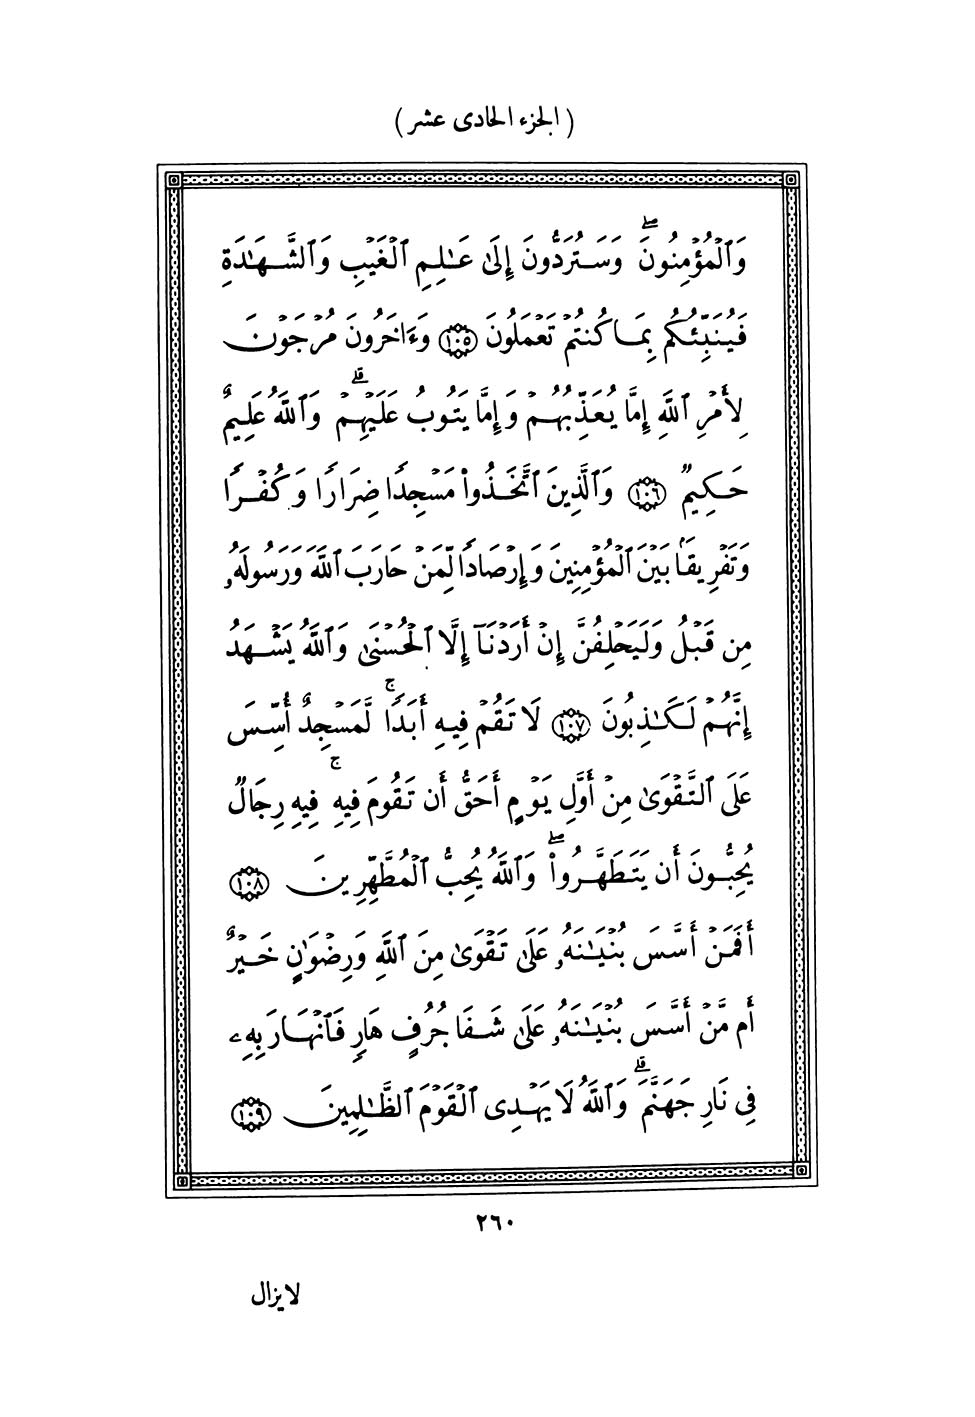 (الجزء الحادى عشر)
وَٱلْمُؤْمِنُونَۖ وَسَتُرَدُّونَ إِلَىٰ عَـٰلِمِ ٱلْغَيْبِ وَٱلشَّهَـٰدَةِ
فَيُنَبِّئُكُم بِمَا كُنتُمْ تَعْمَلُونَ ١٠٥ وَءَاخَرُونَ مُرْجَوْنَ
لِأَمْرِ ٱللَّهِ إِمَّا يُعَذِّبُهُمْ وَإِمَّا يَتُوبُ عَلَيْهِمْۗ وَٱللَّهُ عَلِيمٌ
حَكِيمٌ ١٠٦ وَٱلَّذِينَ ٱتَّخَذُوا۟ مَسْجِدًا ضِرَارًا وَكُفْرًا
وَتَفْرِيقًۢا بَيْنَ ٱلْمُؤْمِنِينَ وَإِرْصَادًا لِّمَنْ حَارَبَ ٱللَّهَ وَرَسُولَهُۥ
مِن قَبْلُ وَلَيَحْلِفُنَّ إِنْ أَرَدْنَآ إِلَّا ٱلْحُسْنَىٰ وَٱللَّهُ يَشْهَدُ
إِنَّهُمْ لَكَـٰذِبُونَ ١٠٧ لَا تَقُمْ فِيهِ أَبَدًاۚ لَّمَسْجِدٌ أُسِّسَ
عَلَى ٱلتَّقْوَىٰ مِنْ أَوَّلِ يَوْمٍ أَحَقُّ أَن تَقُومَ فِيهِۚ فِيهِ رِجَالٌ
يُحِبُّونَ أَن يَتَطَهَّرُوا۟ۖ وَٱللَّهُ يُحِبُّ ٱلْمُطَّهِّرِينَ ١٠٨
أَفَمَنْ أَسَّسَ بُنْيَـٰنَهُۥ عَلَىٰ تَقْوَىٰ مِنَ ٱللَّهِ وَرِضْوَٰنٍ خَيْرٌ
أَم مَّنْ أَسَّسَ بُنْيَـٰنَهُۥ عَلَىٰ شَفَا جُرُفٍ هَارٍ فَٱنْهَارَ بِهِۦ
فِى نَارِ جَهَنَّمَۗ وَٱللَّهُ لَا يَهْدِى ٱلْقَوْمَ ٱلظَّـٰلِمِينَ ١٠٩
٢٦٠
لايزال